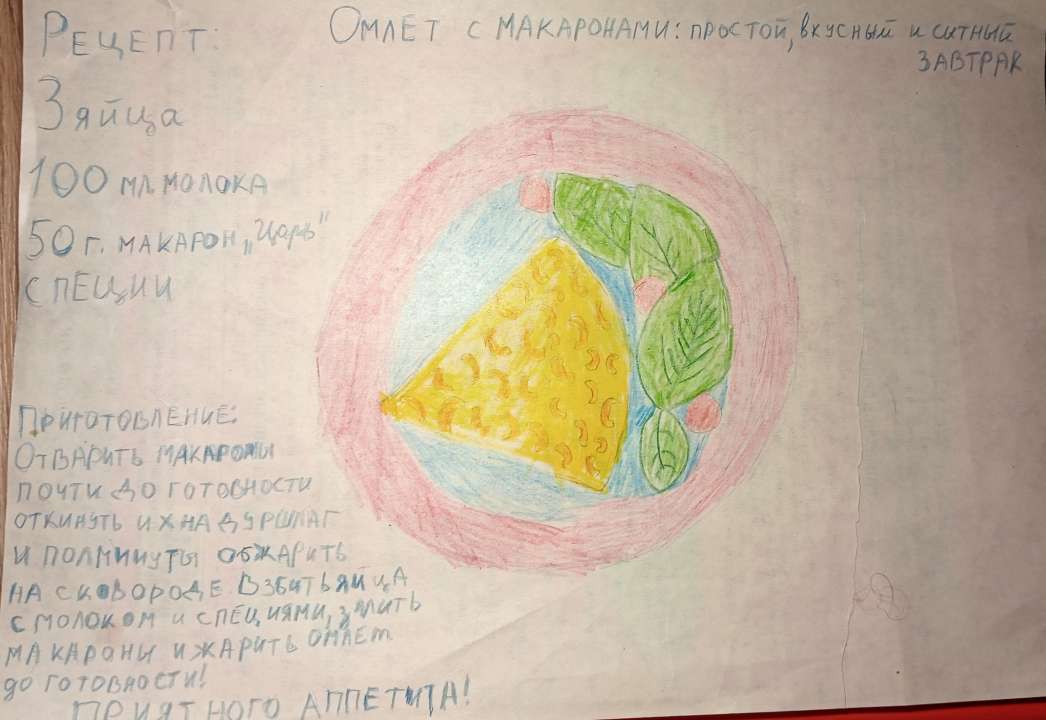 Рецепт:
Омлет с макаронами: простой, вкусный и ситный
завтрак
3 яйца
100 мл. молока
50 г. макарон „Царь"
специи
Приготовление:
Отварить макароны
почти до готовности
откинуть их на дуршлаг
и полминуты обжарить
на сковороде Взбить яйца
с молоком и специями, залить
макароны и жарить омлет
до готовности!
Приятного аппетита!